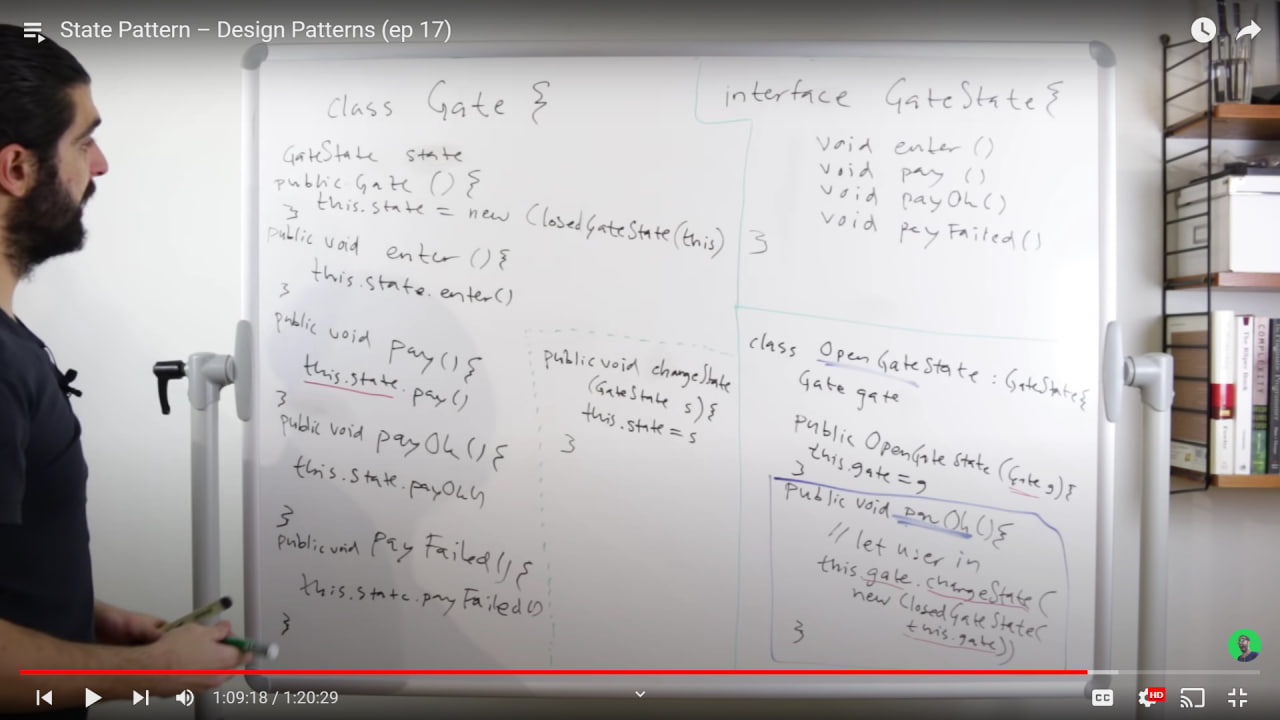 State Pattern – Design Patterns (ep 17)
class Gate {
GateState state
public Gate () {
this.state = new ClosedGateState(this)
}
public void enter () {
this.state.enter()
}
public void pay () {
this.state.pay()
}
public void payOk () {
this.state.payOk()
}
public void payFailed() {
this.state.payFailed()
}
public void changeState
(GateState s) {
this.state = s
}
interface GateState {
void enter ()
void pay ()
void payOk ()
void payFailed()
}
class OpenGateState : GateState {
Gate gate
public OpenGateState (Gate g) {
this.gate = g
}
public void payOk () {
// let user in
this.gate.changeState(
new ClosedGateState(
this.gate))
}
COMPLEXITY
1:09:18 / 1:20:29
CC
HD